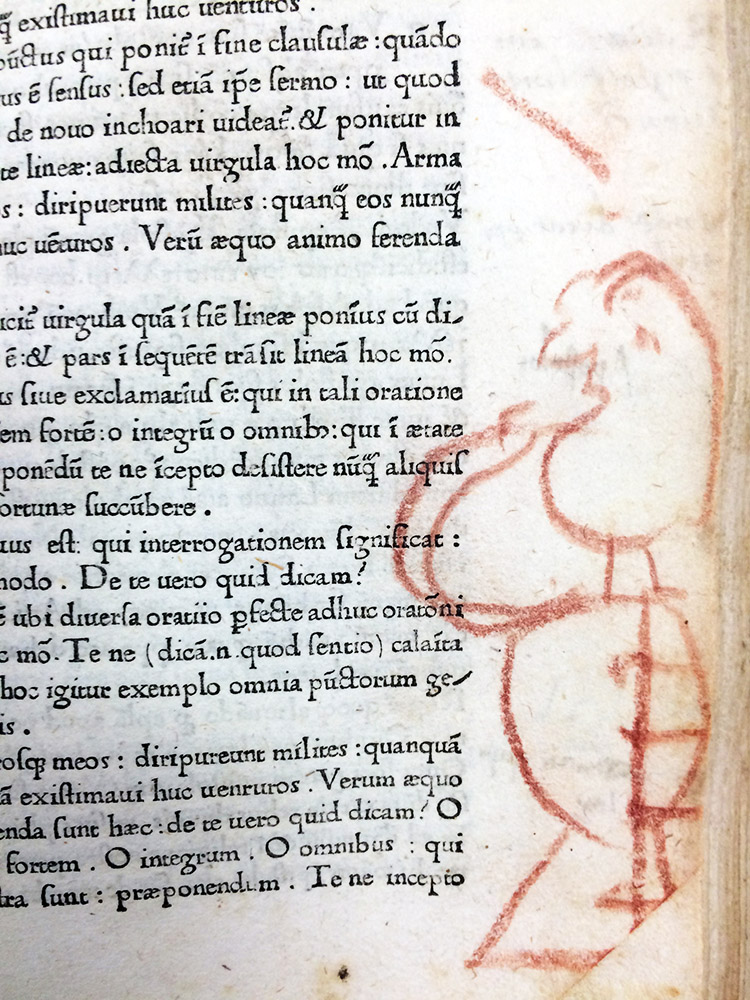 q̃ existimaui huc uenturos .
pūctus qui ponit̃ ī fine clausulæ : quãdo
us ē sensus : sed etiã ip̃e sermo : ut quod
de nouo inchoari uideat̃. & ponitur in
te lineæ: adiecta uirgula hoc mõ . Arma
s : diripuerunt milites : quanq̃ eos nunq̃
huc uēturos . Verū æquo animo ferenda
icit̃ uirgula quã ī fiē lineæ ponius cū di⸝
ē : & pars ī sequētē trãsit lineã hoc mõ.
us siue exclamatiuſ ē: qui in tali oratione
em fortē : o integrū o omnibꝫ: qui ī ætate
ponēdū te ne īcepto desistere nūq̃ aliquiſ
ortunæ succūbere .
uus est: qui interrogationem significat :
modo . De te uero quid dicam?
ē ubi diuersa oratiio ꝑfecte adhuc oratõni
c mõ. Te ne (dicã.n.quod sentio) calaīta
hoc igitur exemplo omnia pūctorum ge⸝
is .
rosqꝫ meos : diripureunt milites : quanquã
ã existimaui huc uenruros . Verum æquo
enda sunt hæc : de te uero quid dicam? O
fortem . O integrum . O omnibus : qui
tra sunt : præponendum . Te ne incepto